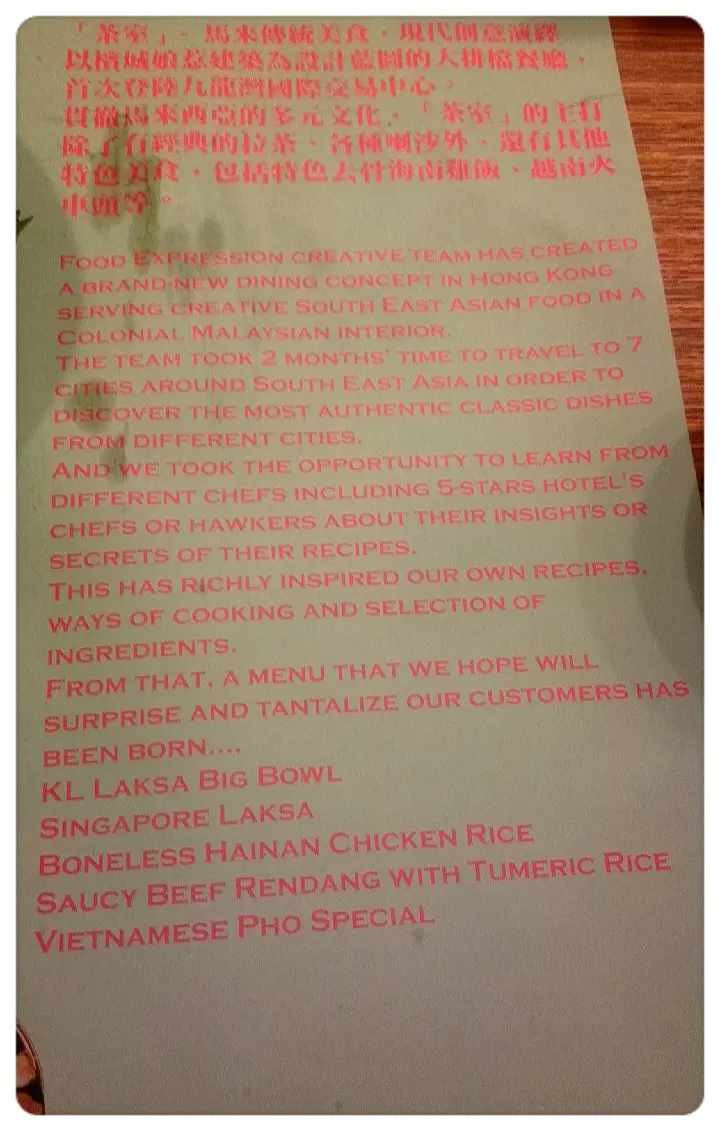 「茶室」，馬來傳統美食，現代創意演繹
以檳城娘惹建築為設計藍圖的大排檔餐廳，
首次登陸九龍灣國際交易中心。
貫徹馬來西亞的多元文化，「茶室」的主打
除了有經典的拉茶、各種喇沙外，還有其他
特色美食，包括特色去骨海南雞飯、越南火
車頭等。
FOOD EXPRESSION CREATIVE TEAM HAS CREATED
A BRAND-NEW DINING CONCEPT IN HONG KONG
SERVING CREATIVE SOUTH EAST ASIAN FOOD IN A
COLONIAL MALAYSIAN INTERIOR.
THE TEAM TOOK 2 MONTHS' TIME TO TRAVEL TO 7
CITIES AROUND SOUTH EAST ASIA IN ORDER TO
DISCOVER THE MOST AUTHENTIC CLASSIC DISHES
FROM DIFFERENT CITIES.
AND WE TOOK THE OPPORTUNITY TO LEARN FROM
DIFFERENT CHEFS INCLUDING 5-STARS HOTEL'S
CHEFS OR HAWKERS ABOUT THEIR INSIGHTS OR
SECRETS OF THEIR RECIPES.
THIS HAS RICHLY INSPIRED OUR OWN RECIPES,
WAYS OF COOKING AND SELECTION OF
INGREDIENTS.
FROM THAT, A MENU THAT WE HOPE WILL
SURPRISE AND TANTALIZE OUR CUSTOMERS HAS
BEEN BORN....
KL LAKSA BIG BOWL
SINGAPORE LAKSA
BONELESS HAINAN CHICKEN RICE
SAUCY BEEF RENDANG WITH TUMERIC RICE
VIETNAMESE PHO SPECIAL